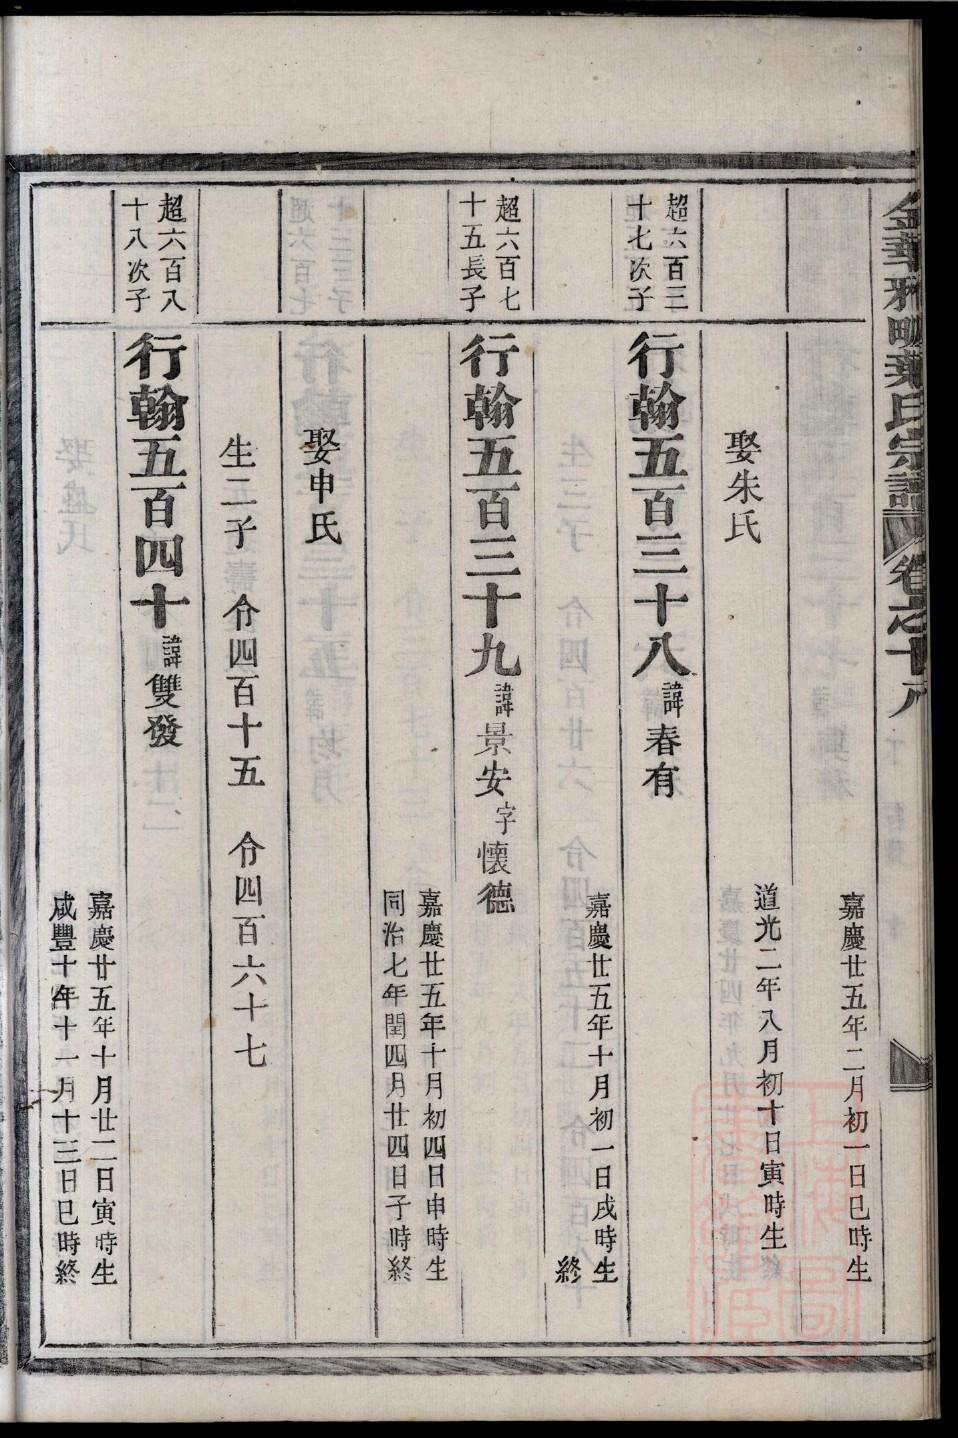 金華雅畈葉氏宗譜 卷之十八
嘉慶廿五年二月初一日巳時生
娶朱氏
道光二年八月初十日寅時生
超六百三
十七次子
行翰五百三十八 諱春有
嘉慶廿五年十月初一日戌時生
終
超六百七
十五長子
行翰五百三十九 諱景安 字懷德
嘉慶廿五年十月初四日申時生
同治七年閏四月廿四日子時終
娶申氏
生二子 令四百十五 令四百六十七
超六百八
十八次子
行翰五百四十 諱雙發
嘉慶廿五年十月廿二日寅時生
咸豐十年十一月十三日巳時終